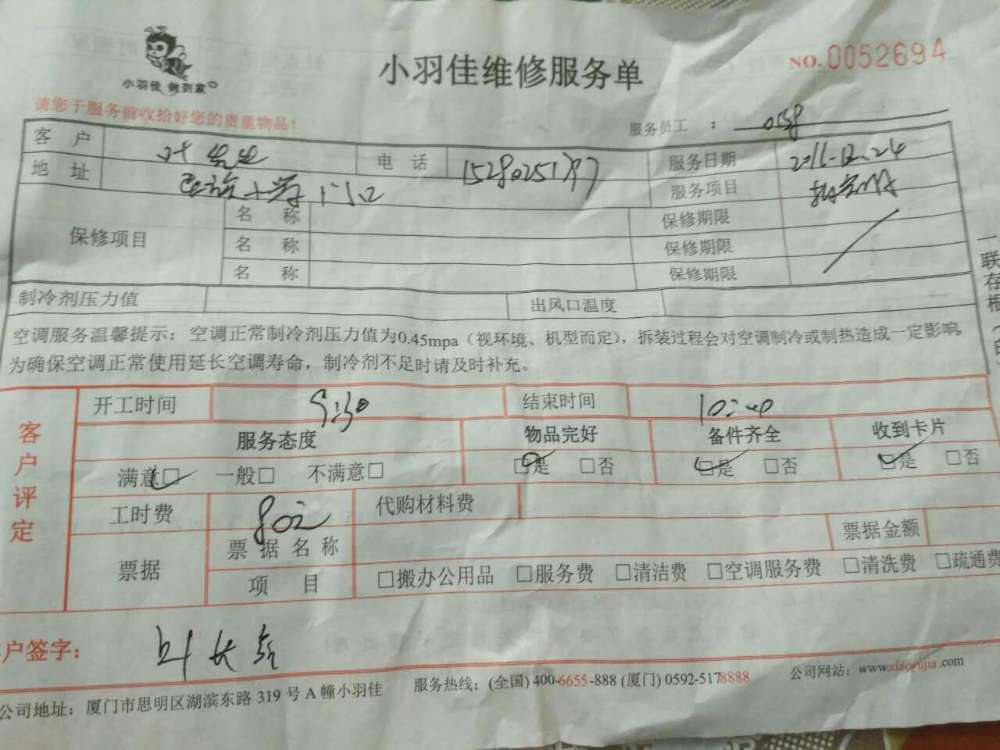 小羽佳 做到家
小羽佳维修服务单
NO.0052694
请您于服务前收拾好您的贵重物品!
服务员工 : 058
客户 叶先生 电话 服务日期
地址 门口 服务项目
保修项目 名称 保修期限
名称 保修期限
名称 保修期限
制冷剂压力值 出风口温度
空调服务温馨提示:空调正常制冷剂压力值为0.45mpa(视环境、机型而定),拆装过程会对空调制冷或制热造成一定影响,
为确保空调正常使用延长空调寿命,制冷剂不足时请及时补充。
一联存根
客户评定
开工时间 9:30 结束时间 10:40
服务态度 物品完好 备件齐全 收到卡片
满意□ 一般□ 不满意□ □是 □否 □是 □否 □是 □否
工时费 80元 代购材料费
票据 票据名称 票据金额
项目 □搬办公用品 □服务费 □清洁费 □空调服务费 □清洗费 □疏通费
户签字: 叶
公司地址:厦门市思明区湖滨东路 319 号 A 幢小羽佳 服务热线:(全国) 400-6655-888 (厦门) 0592-5178888 公司网站:www.xiaoyujia.com